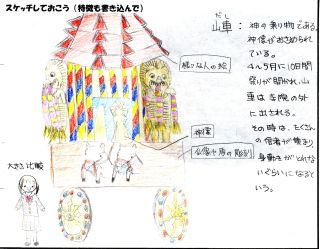 スケッチしておこう(特徴も書き込んで)
だし
山車：神の乗り物である。
神像がおさめられ
ている。
4〜5月に10日間
祭りが開かれ、山
車は寺院の外
に出される。
その時は、たくさん
の信者が集まり、
身動きがとれな
いぐらいになると
いう。
様々な人の絵
神像
仏像や馬の彫刻
大きさ比較